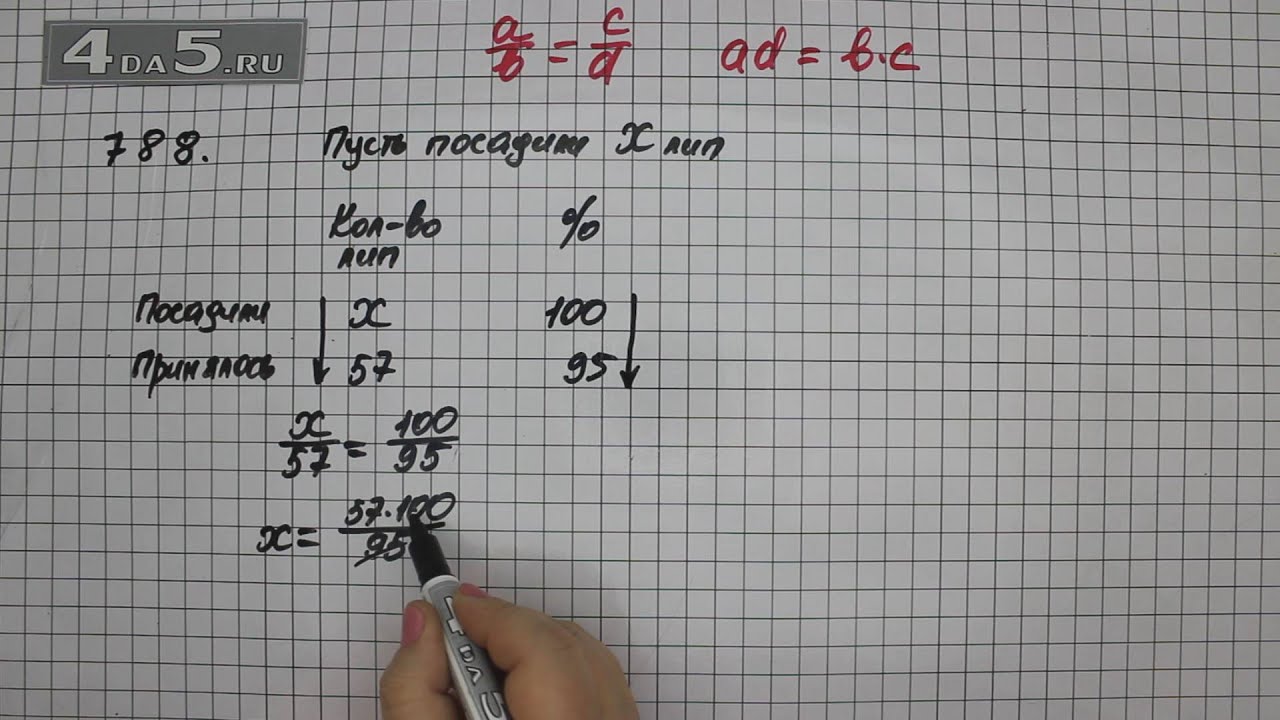 4DA5.RU
a/b = c/d   ad = b·c
788. Пусть посадили x лип
Кол-во %
лип
Посадили x 100
Принялось 57 95
x/57 = 100/95
x = 57·100/95
4DA5